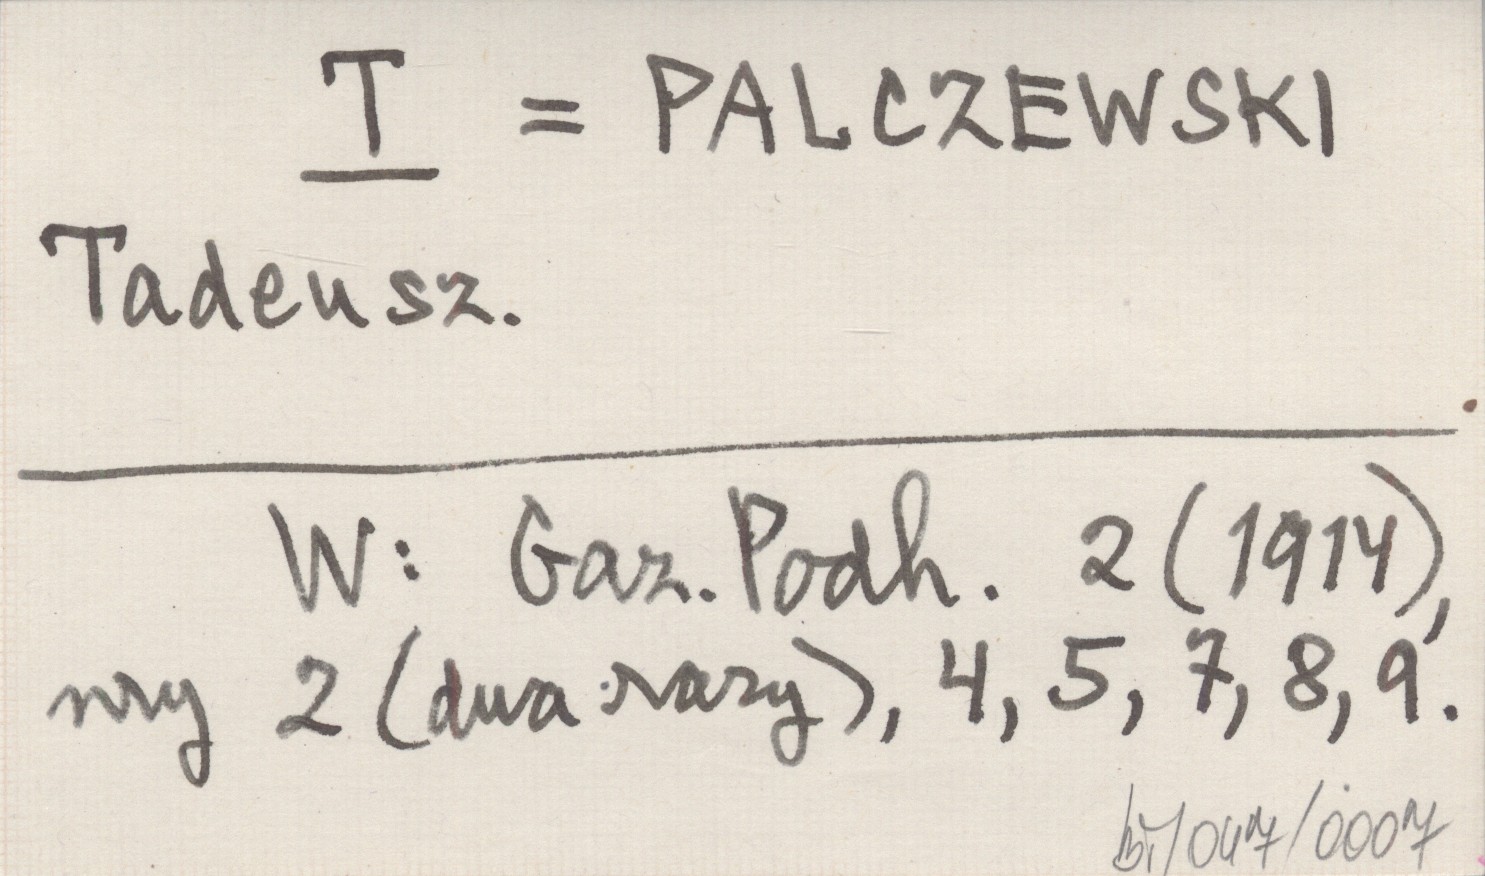 T = PALCZEWSKI
Tadeusz.
W: Gaz. Podh. 2 (1914),
nry 2 (dwa razy), 4, 5, 7, 8, 9.
bi/047/0007